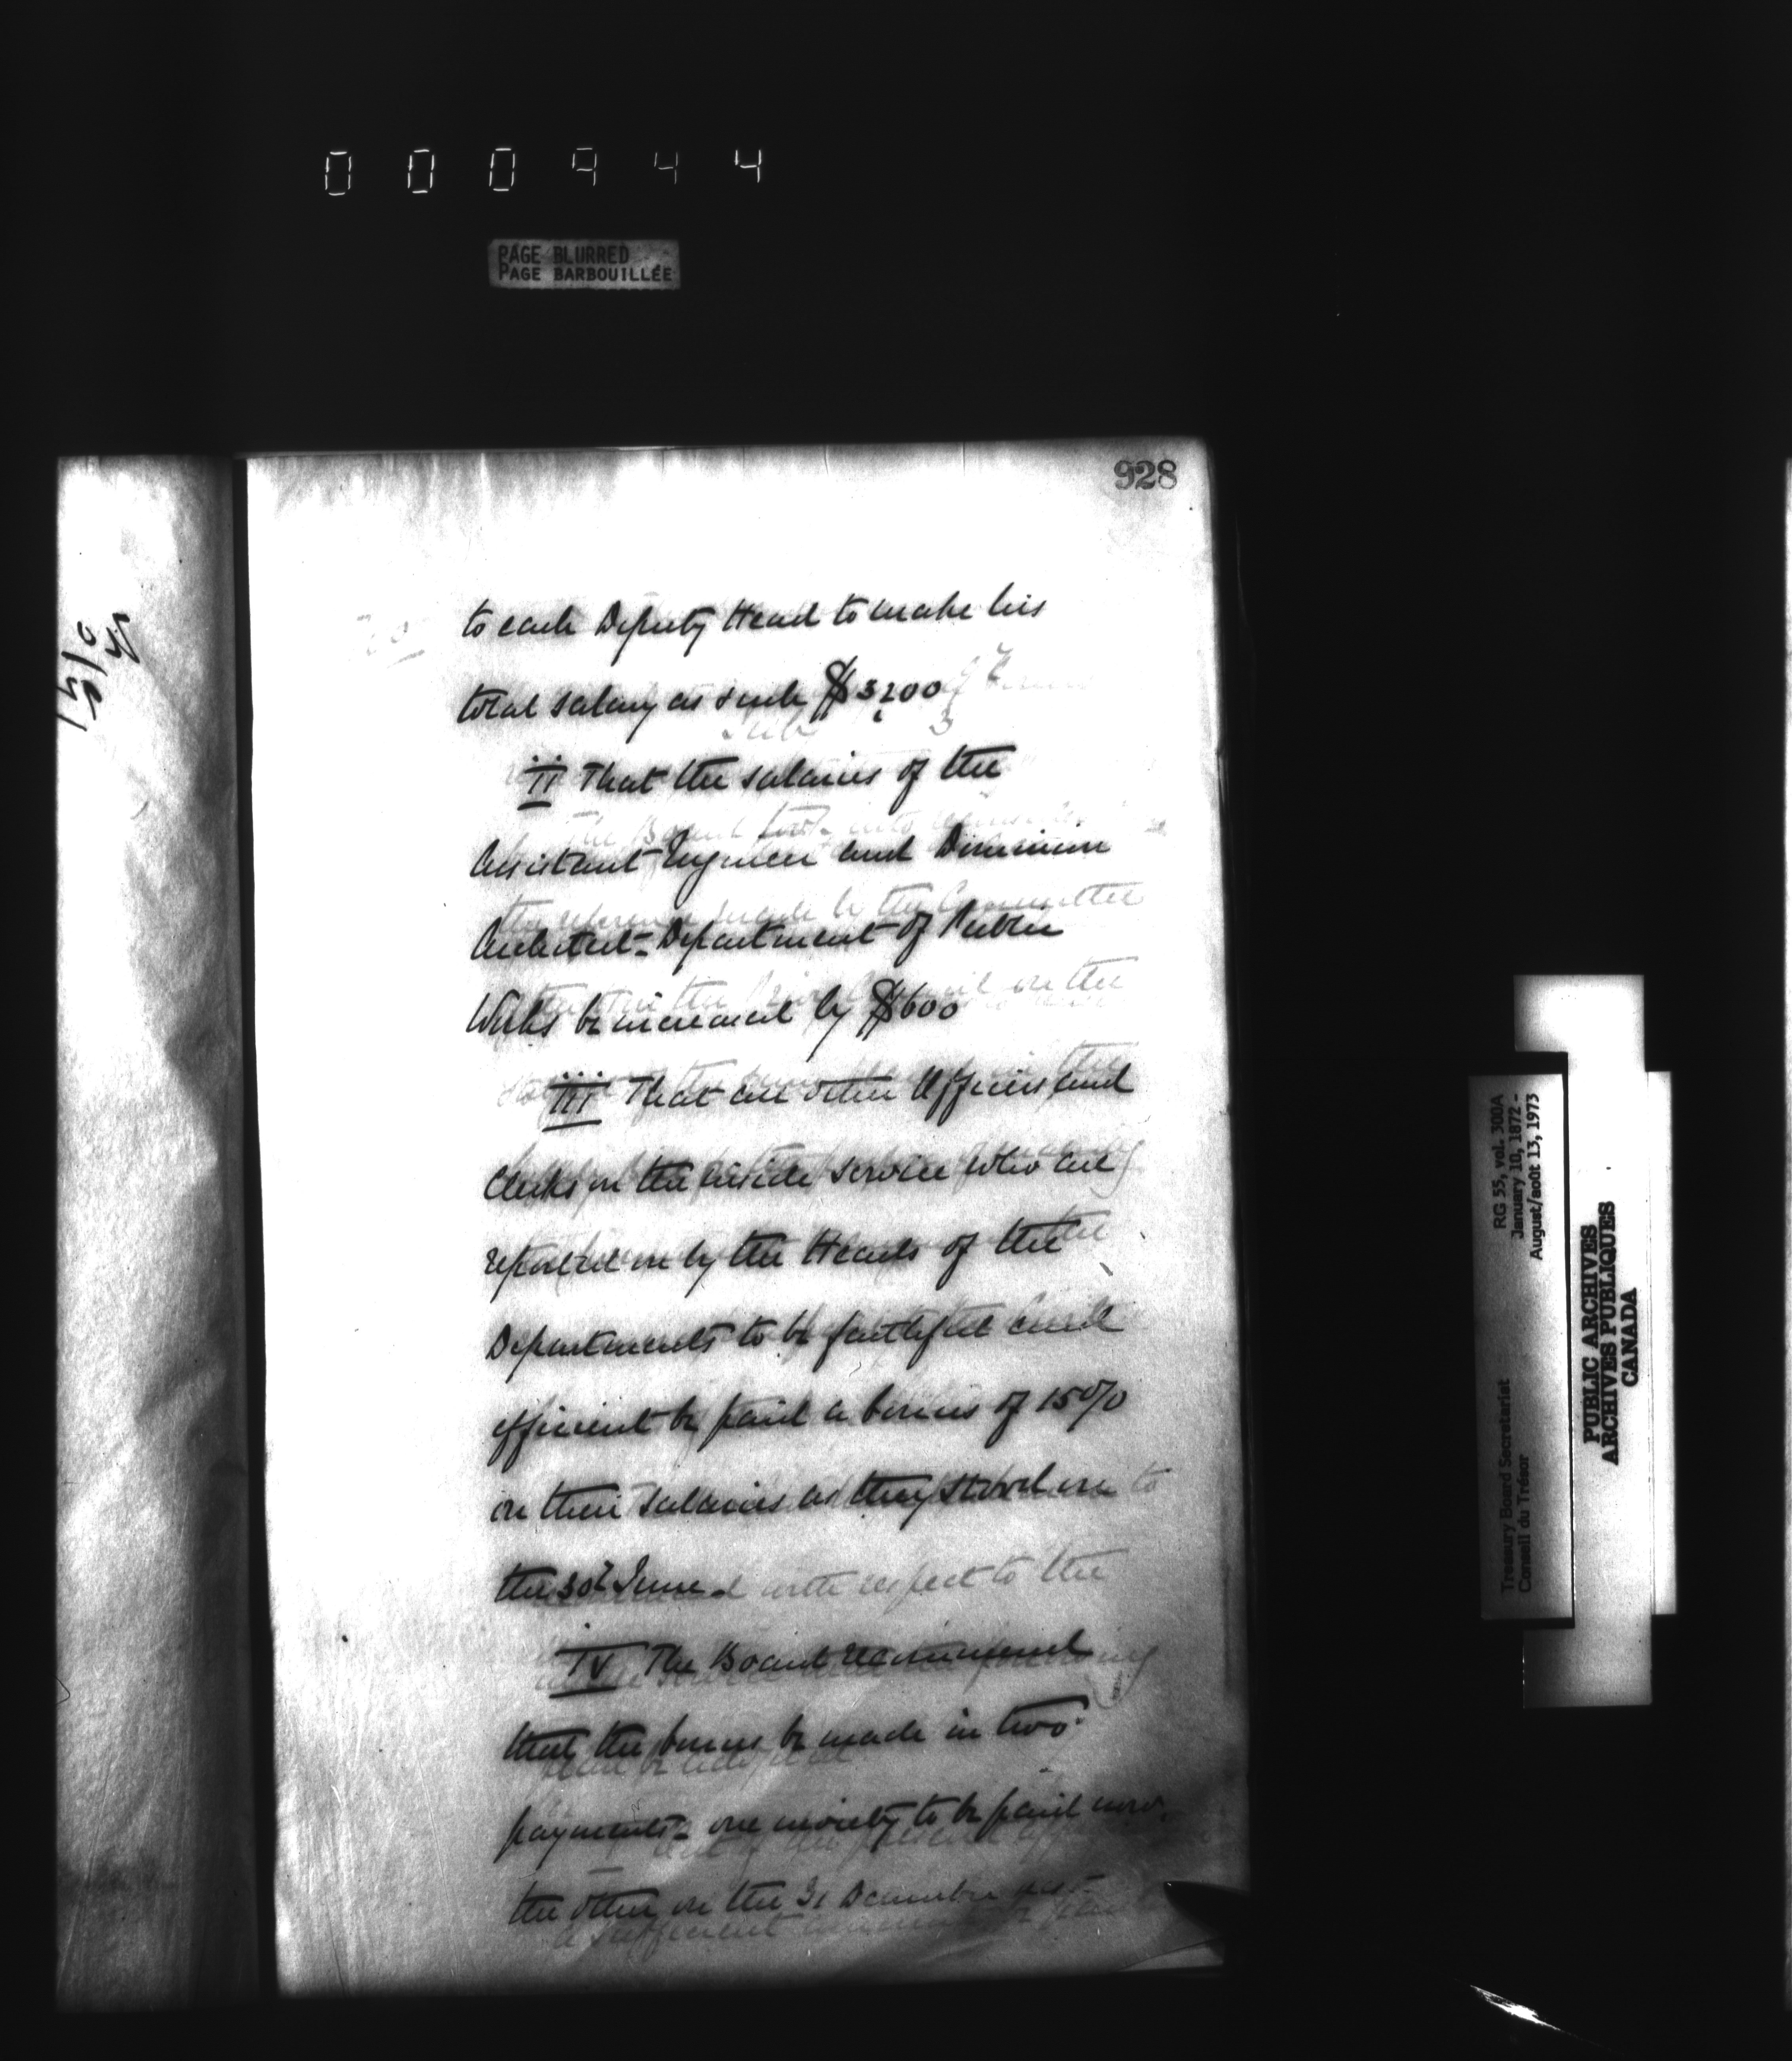 000944
PAGE BLURRED
PAGE BARBOUILLÉE
928
to each Deputy Head to make his
total salary as such $3,200
ii That the salaries of the
Assistant Engineer and Dominion
Architect - Department of Public
Works be increased by $600
iii That all other Officers and
Clerks in the inside service who are
reported on by the Heads of the
Departments to be faithful and
efficient be paid a bonus of 15%
on their salaries as they stood on
the 30th June
iv The Board recommend
that the bonus be made in two
payments - one moiety to be paid now,
the other on the 31 December
Treasury Board Secretariat
Conseil du Trésor
RG 55, vol. 300A
January 10, 1872 -
August/août 13, 1973
PUBLIC ARCHIVES
ARCHIVES PUBLIQUES
CANADA